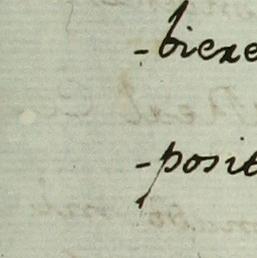 -biexe
-posit